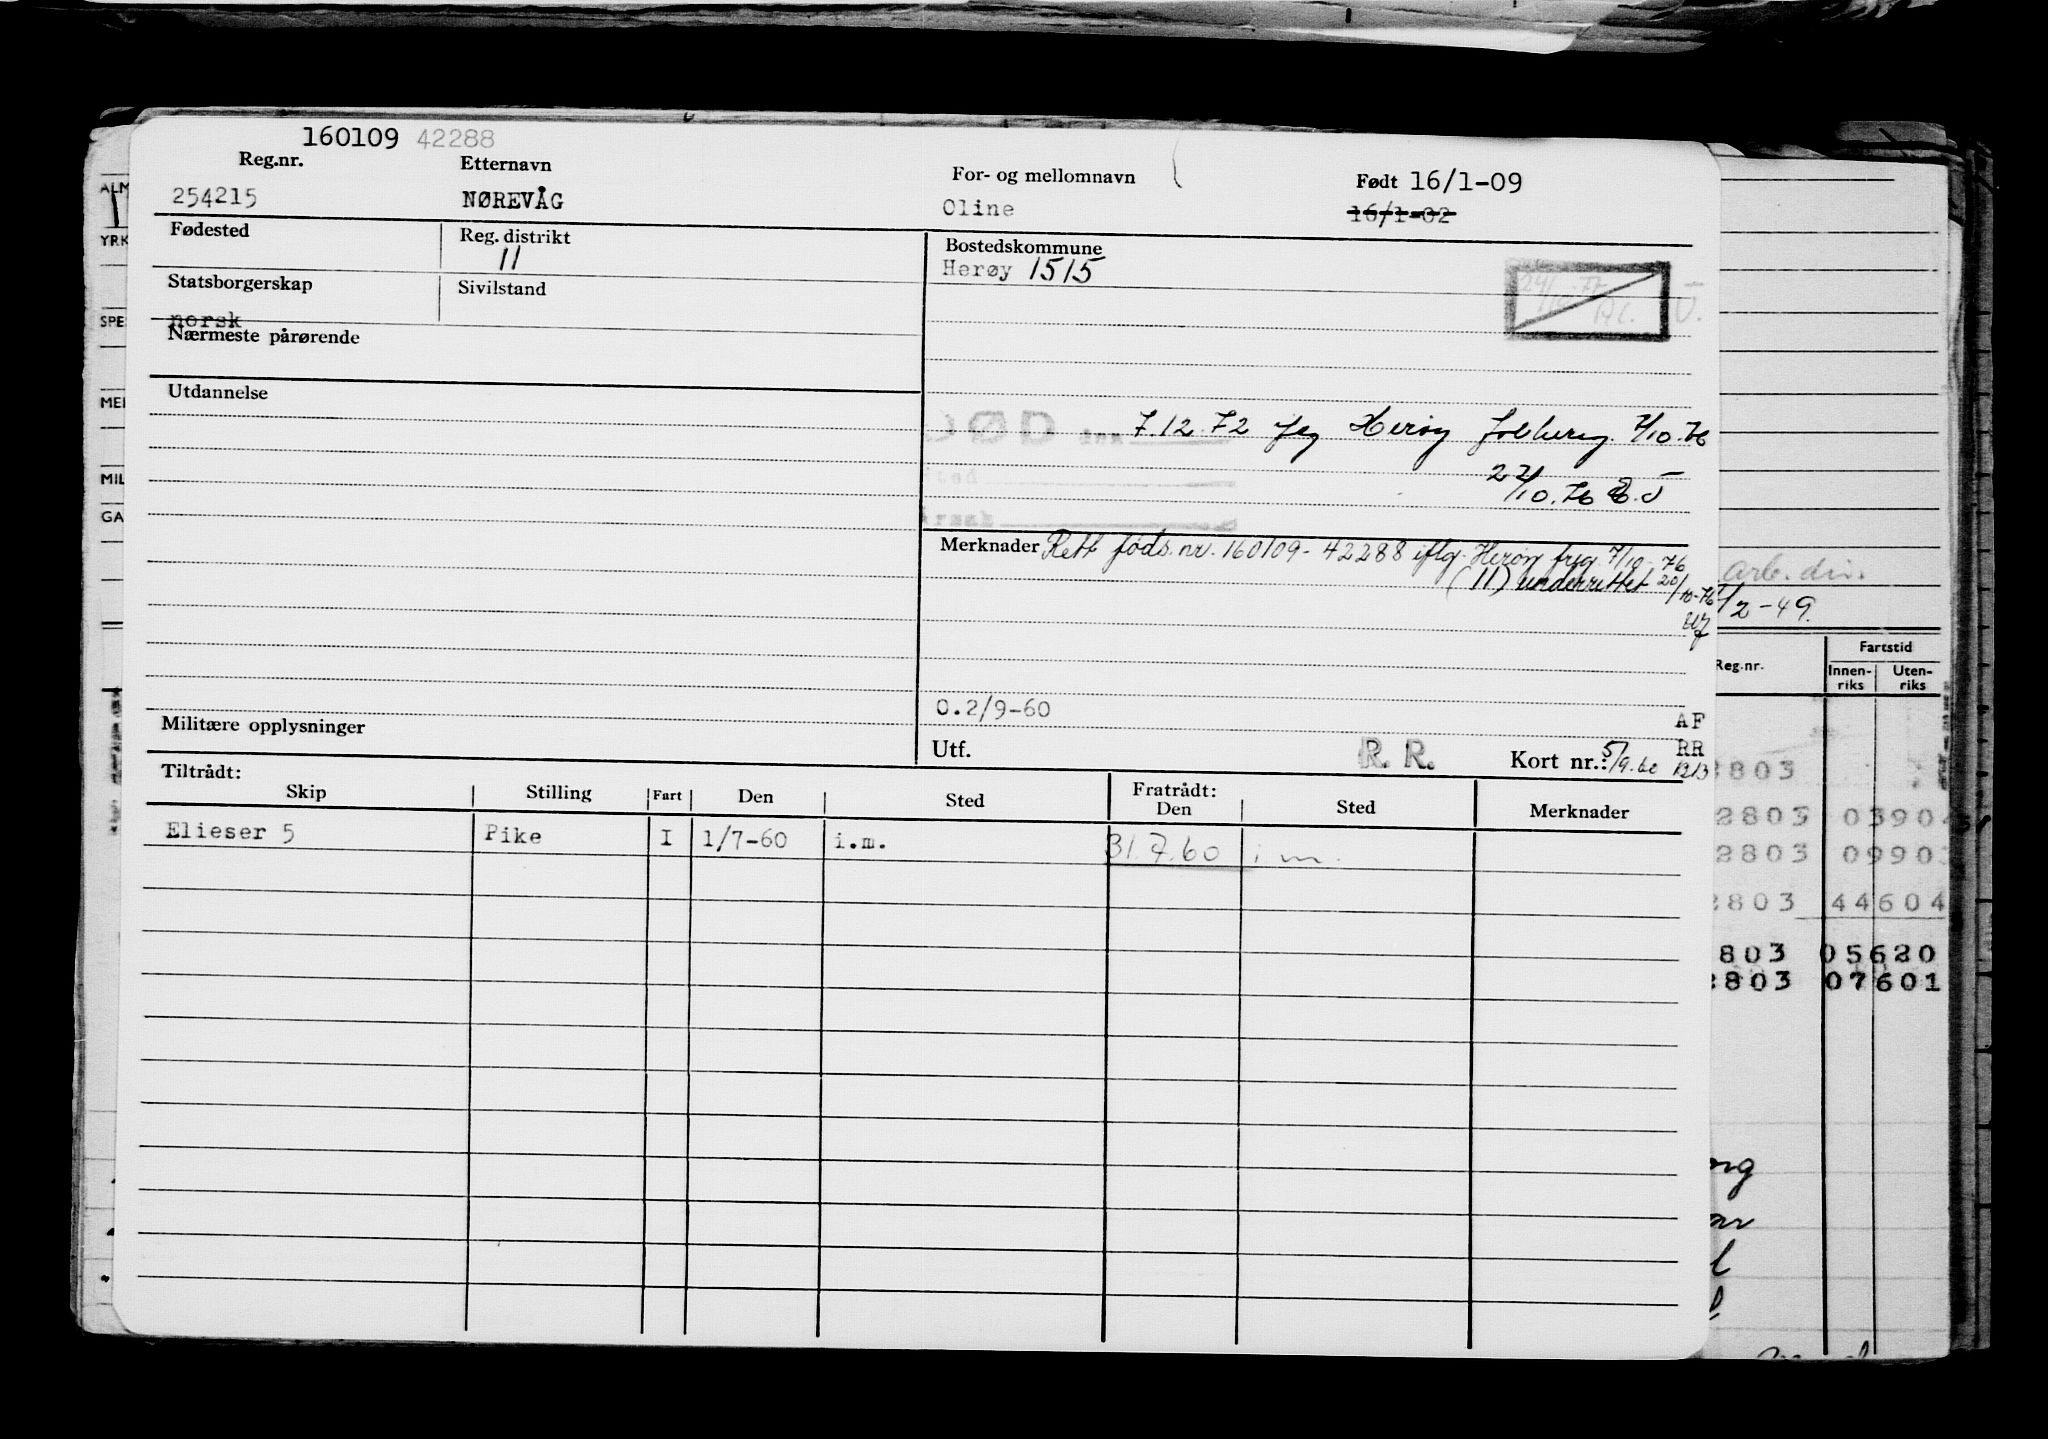 160109 42288
Reg.nr. Etternavn For- og mellomnavn Født 16/1-09
254215 NØREVÅG Oline 16/1-02
Fødested Reg. distrikt Bostedskommune
11 Herøy 1515
Statsborgerskap Sivilstand
norsk
Nærmeste pårørende
Utdannelse
DØD den 7.12.72 flg Herøy folkereg. 7/10.76
Sted 22/10.76
Årsak
Merknader Rett føds.nr. 160109-42288 iflg. Herøy freg 7/10-76
(11) underrettet 20/10-76
O.2/9-60
Militære opplysninger AF
Utf. R. R. Kort nr.: 5/9.60 RR
Tiltrådt: Fratrådt:
Skip Stilling Fart Den Sted Den Sted Merknader
Elieser 5 Pike I 1/7-60 i.m. 31.7.60 i m.
ALM
YRK
SPE
MEI
MIL
GA
arb. div.
/2-49.
Reg.nr. Fartstid
Innen-riks Uten-riks
2803
2803 0390
2803 0990
2803 44604
803 05620
2803 07601